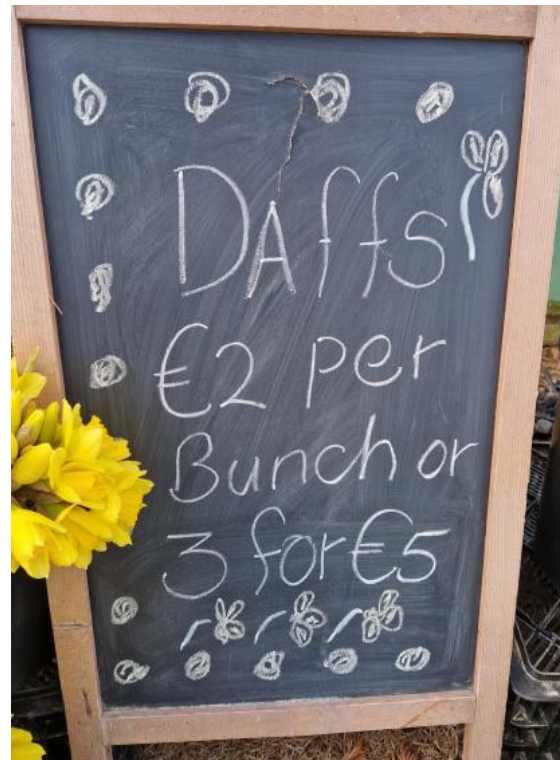 DAffs
€2 per
Bunch or
3 for €5